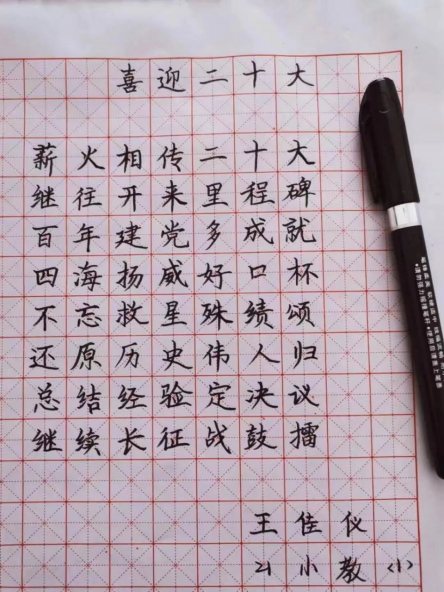 喜迎二十大
薪火相传二十大
继往开来里程碑
百年建党多成就
四海扬威好口杯
不忘救星殊绩颂
还原历史伟人归
总结经验定决议
继续长征战鼓擂
王佳仪
21小教(1)